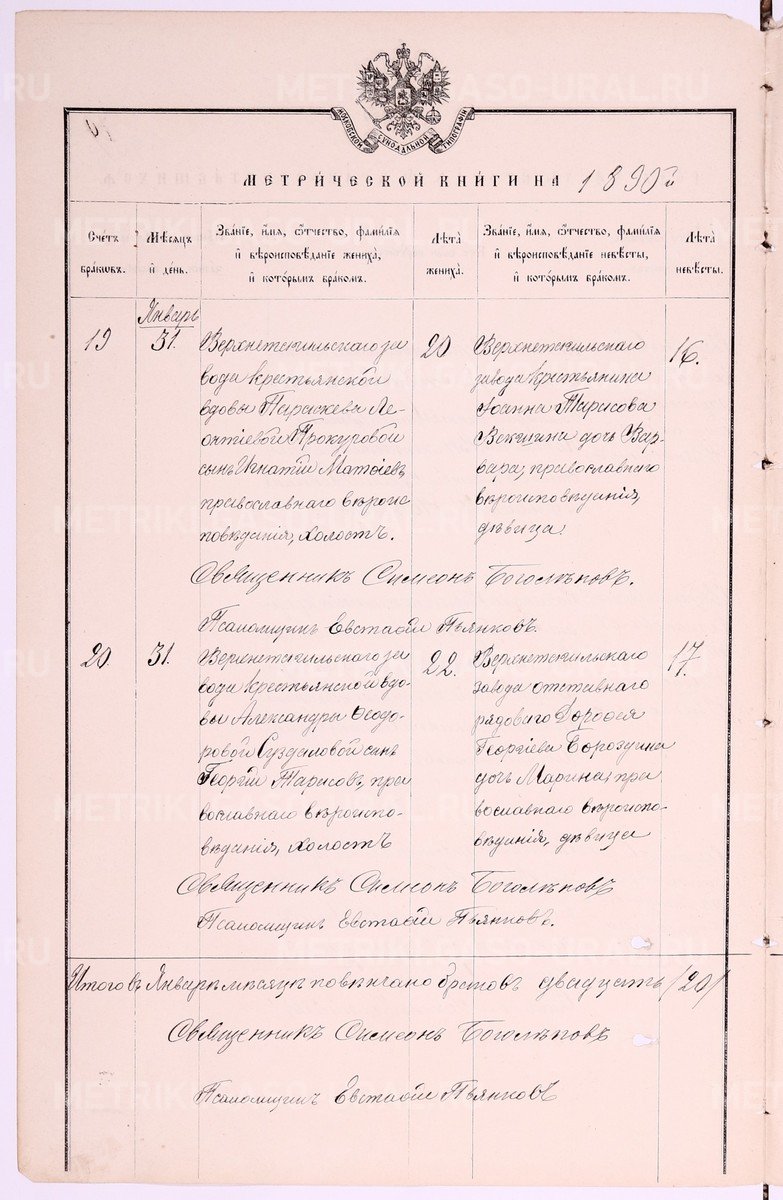 МОСКОВСКОЙ СУНОДАЛЬНОЙ ТИПОГРАФІИ
МЕТРИ́ЧЕСКОЙ КНИ́ГИ НА 1890 й
Сче́тъ бра́кѡвъ.
Мѣ́сѧцъ и҆ де́нь.
Зва́нїе, и҆́мѧ, ѻ҆́тчество, фами́лїѧ и҆ вѣроисповѣ́данїе жениха̀, и҆ кото́рымъ бра́комъ.
Лѣ́та жениха̀.
Зва́нїе, и҆́мѧ, ѻ҆́тчество, фами́лїѧ и҆ вѣроисповѣ́данїе невѣ́сты, и҆ кото́рымъ бра́комъ.
Лѣ́та невѣ́сты.
Январь
19
31.
Верхнетагильскаго за
вода крестьянской
вдовы Параскевы Ле-
онтіевой Прокуровой
сынъ Игнатій Матѳіевъ
православнаго вѣроис
повѣданія, холостъ.
20
Верхнетагильскаго
завода крестьянина
Іоанна Тарасова
Векшина дочь Вар-
вара, православнаго
вѣроисповѣданія,
дѣвица
16.
Священникъ Симеонъ Боголѣповъ.
Псаломщикъ Евстафій Пьянковъ.
20
31.
Верхнетагильскаго за
вода крестьянской вдо
вы Александры Ѳеодо-
ровой Суздаловой сынъ
Георгій Тарасовъ, пра
вославнаго вѣроиспо-
вѣданія, холостъ
22.
Верхнетагильскаго
завода отставнаго
рядоваго Дороѳея
Георгіева Бороздина
дочь Марина, пра
вославнаго вѣроиспо
вѣданія, дѣвица
17.
Священникъ Симеонъ Боголѣповъ
Псаломщикъ Евстафій Пьянковъ.
Итого въ Январѣ мѣсяцѣ повѣнчано браковъ двадцать /20/
Священникъ Симеонъ Боголѣповъ
Псаломщикъ Евстафій Пьянковъ